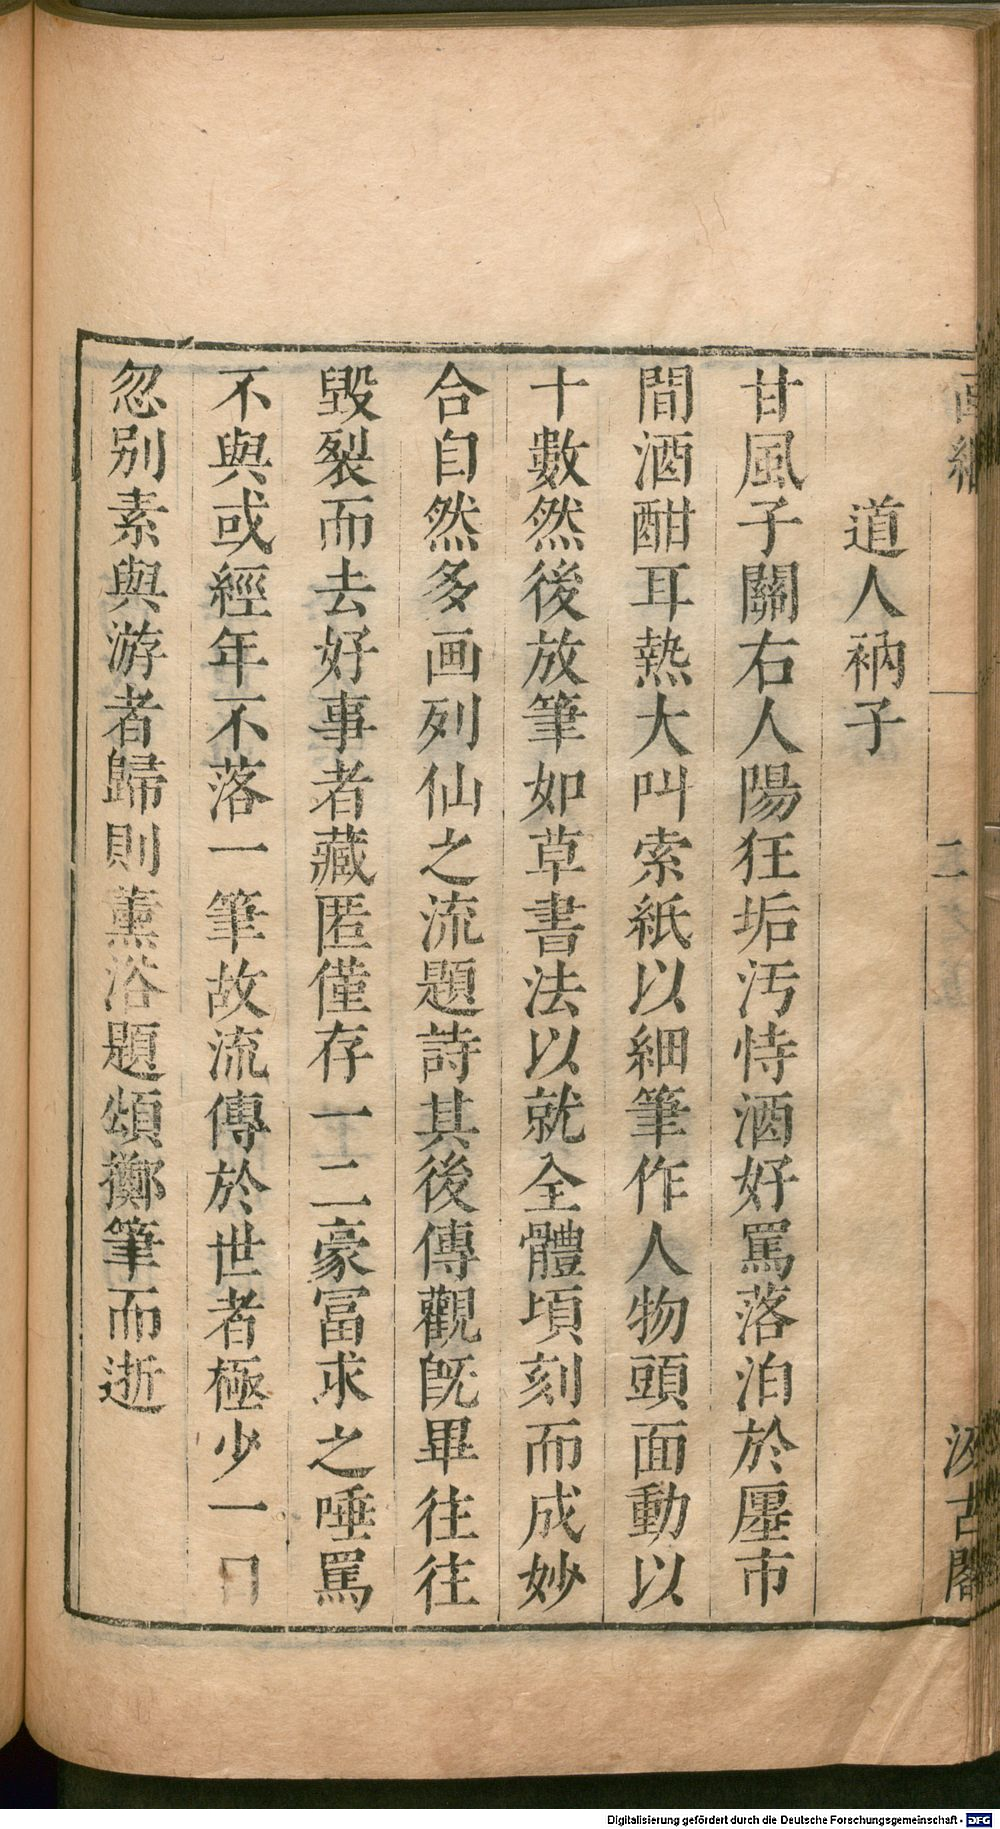 道人衲子
甘風子關右人陽狂垢汚恃酒好罵落泊於㕓市
間酒酣耳熱大叫索紙以細筆作人物頭面動以
十數然後放筆如草書法以就全體頃刻而成妙
合自然多画列仙之流題詩其後傳觀旣畢往往
毀裂而去好事者藏匿僅存一二豪冨求之唾罵
不與或經年不落一筆故流傳於世者極少一
忽别素與游者歸則薰浴題頌擲筆而逝
二
汲古閣
Digitalisierung gefördert durch die Deutsche Forschungsgemeinschaft - DFG